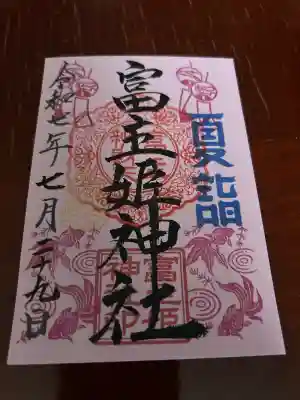 夏詣
富主姫神社
令和七年七月二十九日
富主姫
神社印